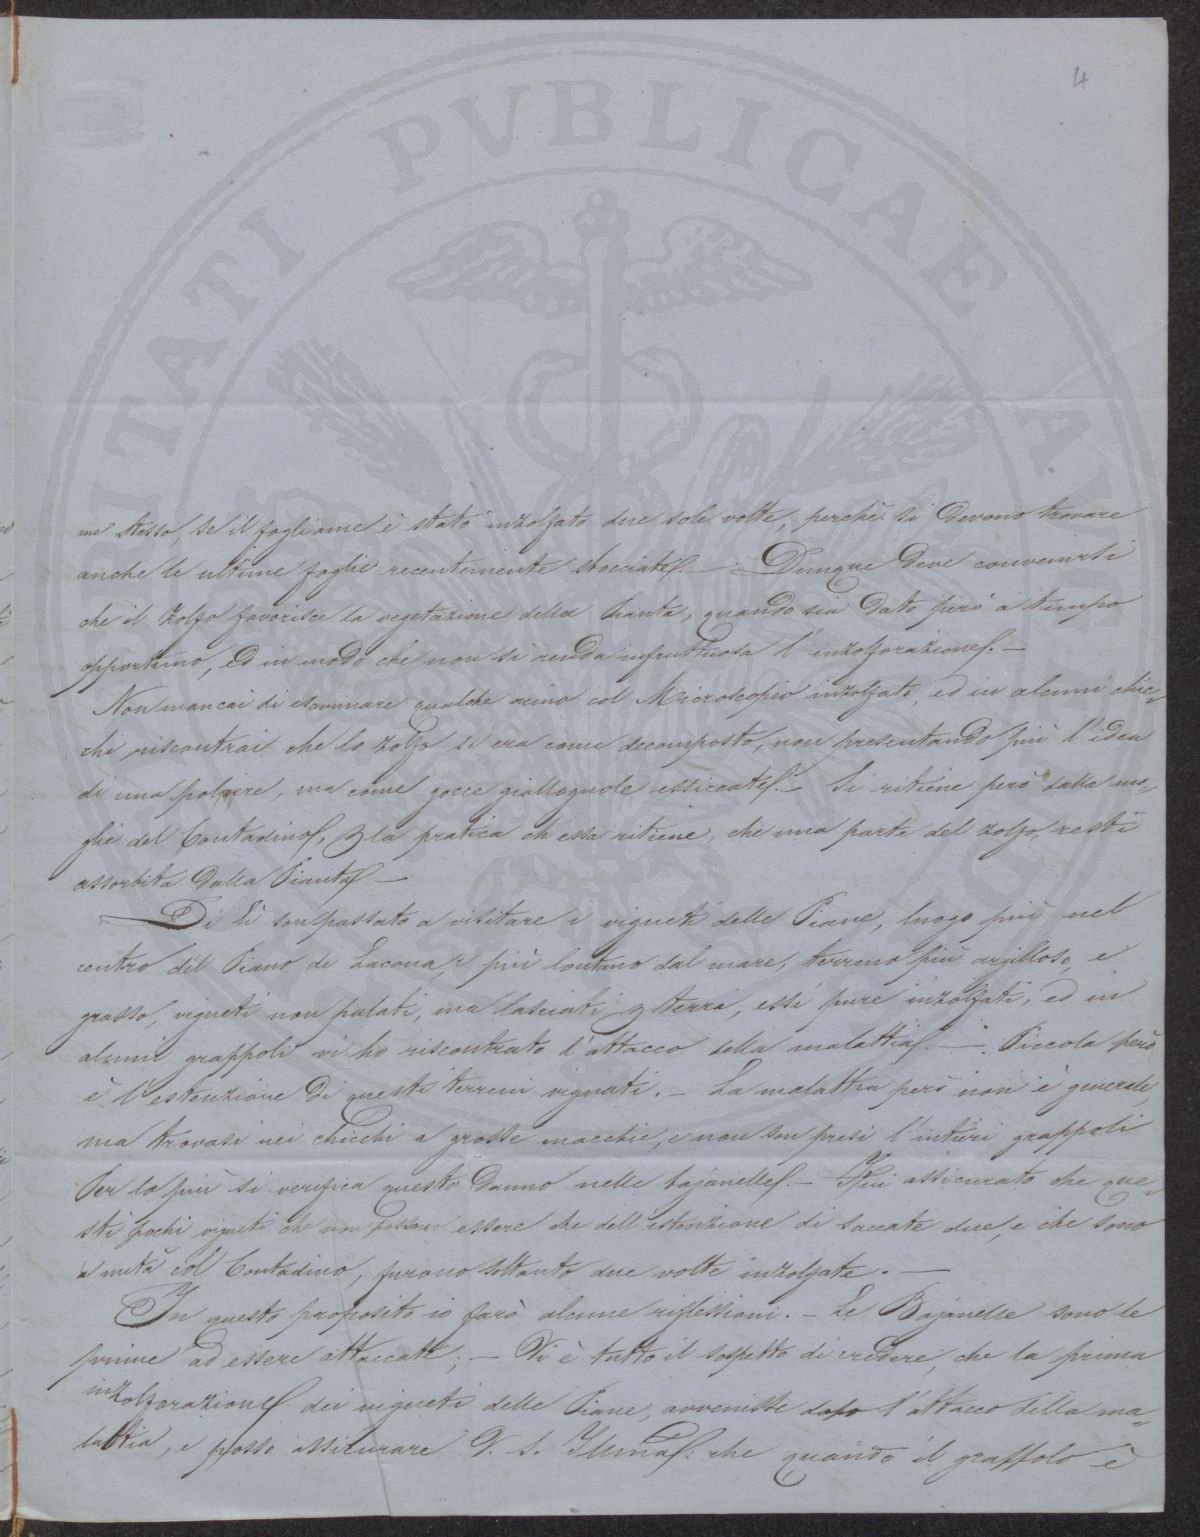 4
PVBLICAE
me stesso, se il fogliame è stato inzolfato due sole volte, perchè si devono trovare
anche le ultime foglie recentemente sbocciate. — Dunque deve convenirsi
che il zolfo favorisce la vegetazione della Pianta, quando sia dato però a tempo
opportuno, ed in modo che non si renda infruttuosa l'inzolforazione. —
Non mancai di esaminare qualche acino col Microscopio inzolfato, ed in alcuni chic-
chi riscontrai che lo zolfo si era come decomposto, non presentando più l'idea
di una polvere, ma come gocce giallognole essiccate. — Si ritiene però dalla mo-
glie del Contadino, p la pratica ch'essa ritiene, che una parte del zolfo, resti
assorbita dalla Pianta. —
Di lì son passato a visitare i vigneti delle Piane, luogo più nel
centro del Piano di Lacona, e più lontano dal mare, terreno più argilloso, e
grasso, vigneti non palati, ma lasciati p terra, essi pure inzolfati, ed in
alcuni grappoli vi ho riscontrato l'attacco della malattia. — Piccola però
è l'estenzione di questi terreni vignati. — La malattia però non è generale,
ma trovasi nei chicchi a grosse macchie, e non son presi l'intieri grappoli
Per lo più si verifica questo danno nelle bajanelle. — Fui assicurato che que-
sti pochi vigneti che non possono essere che dell'estenzione di saccate due, e che sono
a metà col Contadino, furono soltanto due volte inzolfate. —
In questo proposito io farò alcune riflessioni. — Le Bajanelle sono le
prime ad essere attaccate; — Vi è tutto il sospetto di credere, che la prima
inzolforazione dei vigneti delle Piane, avvenisse dopo l'attacco della ma-
lattia, e posso assicurare V. S. Illma: che quando il grappolo è